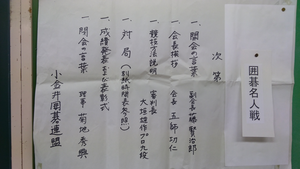 囲碁名人戦
次第
一、開会の言葉 副会長 藤賢治郎
一、会長挨拶 会長 五師功仁
一、競技方法説明 審判長
大垣雄作プロ九段
一、対局(別紙時間表参照)
一、成績発表および表彰式
一、閉会の言葉 理事 菊地秀興
小金井囲碁連盟